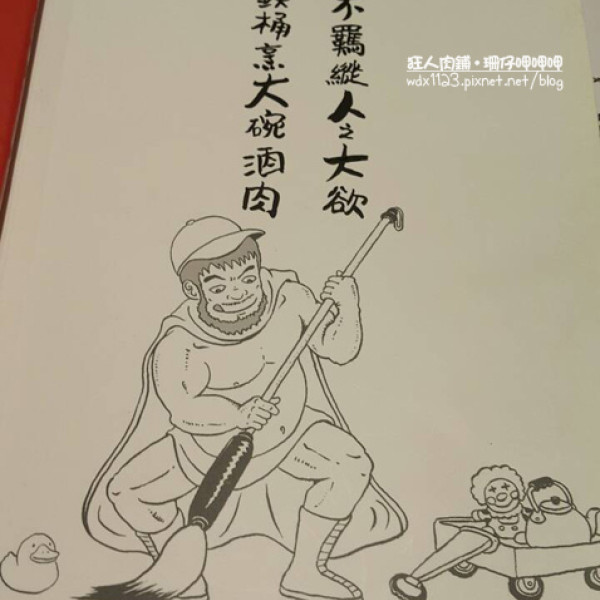 不羈縱人之大欲
鐵桶烹大碗酒肉
狂人肉鋪·珊仔呷呷呷
wdx1123.pixnet.net/blog